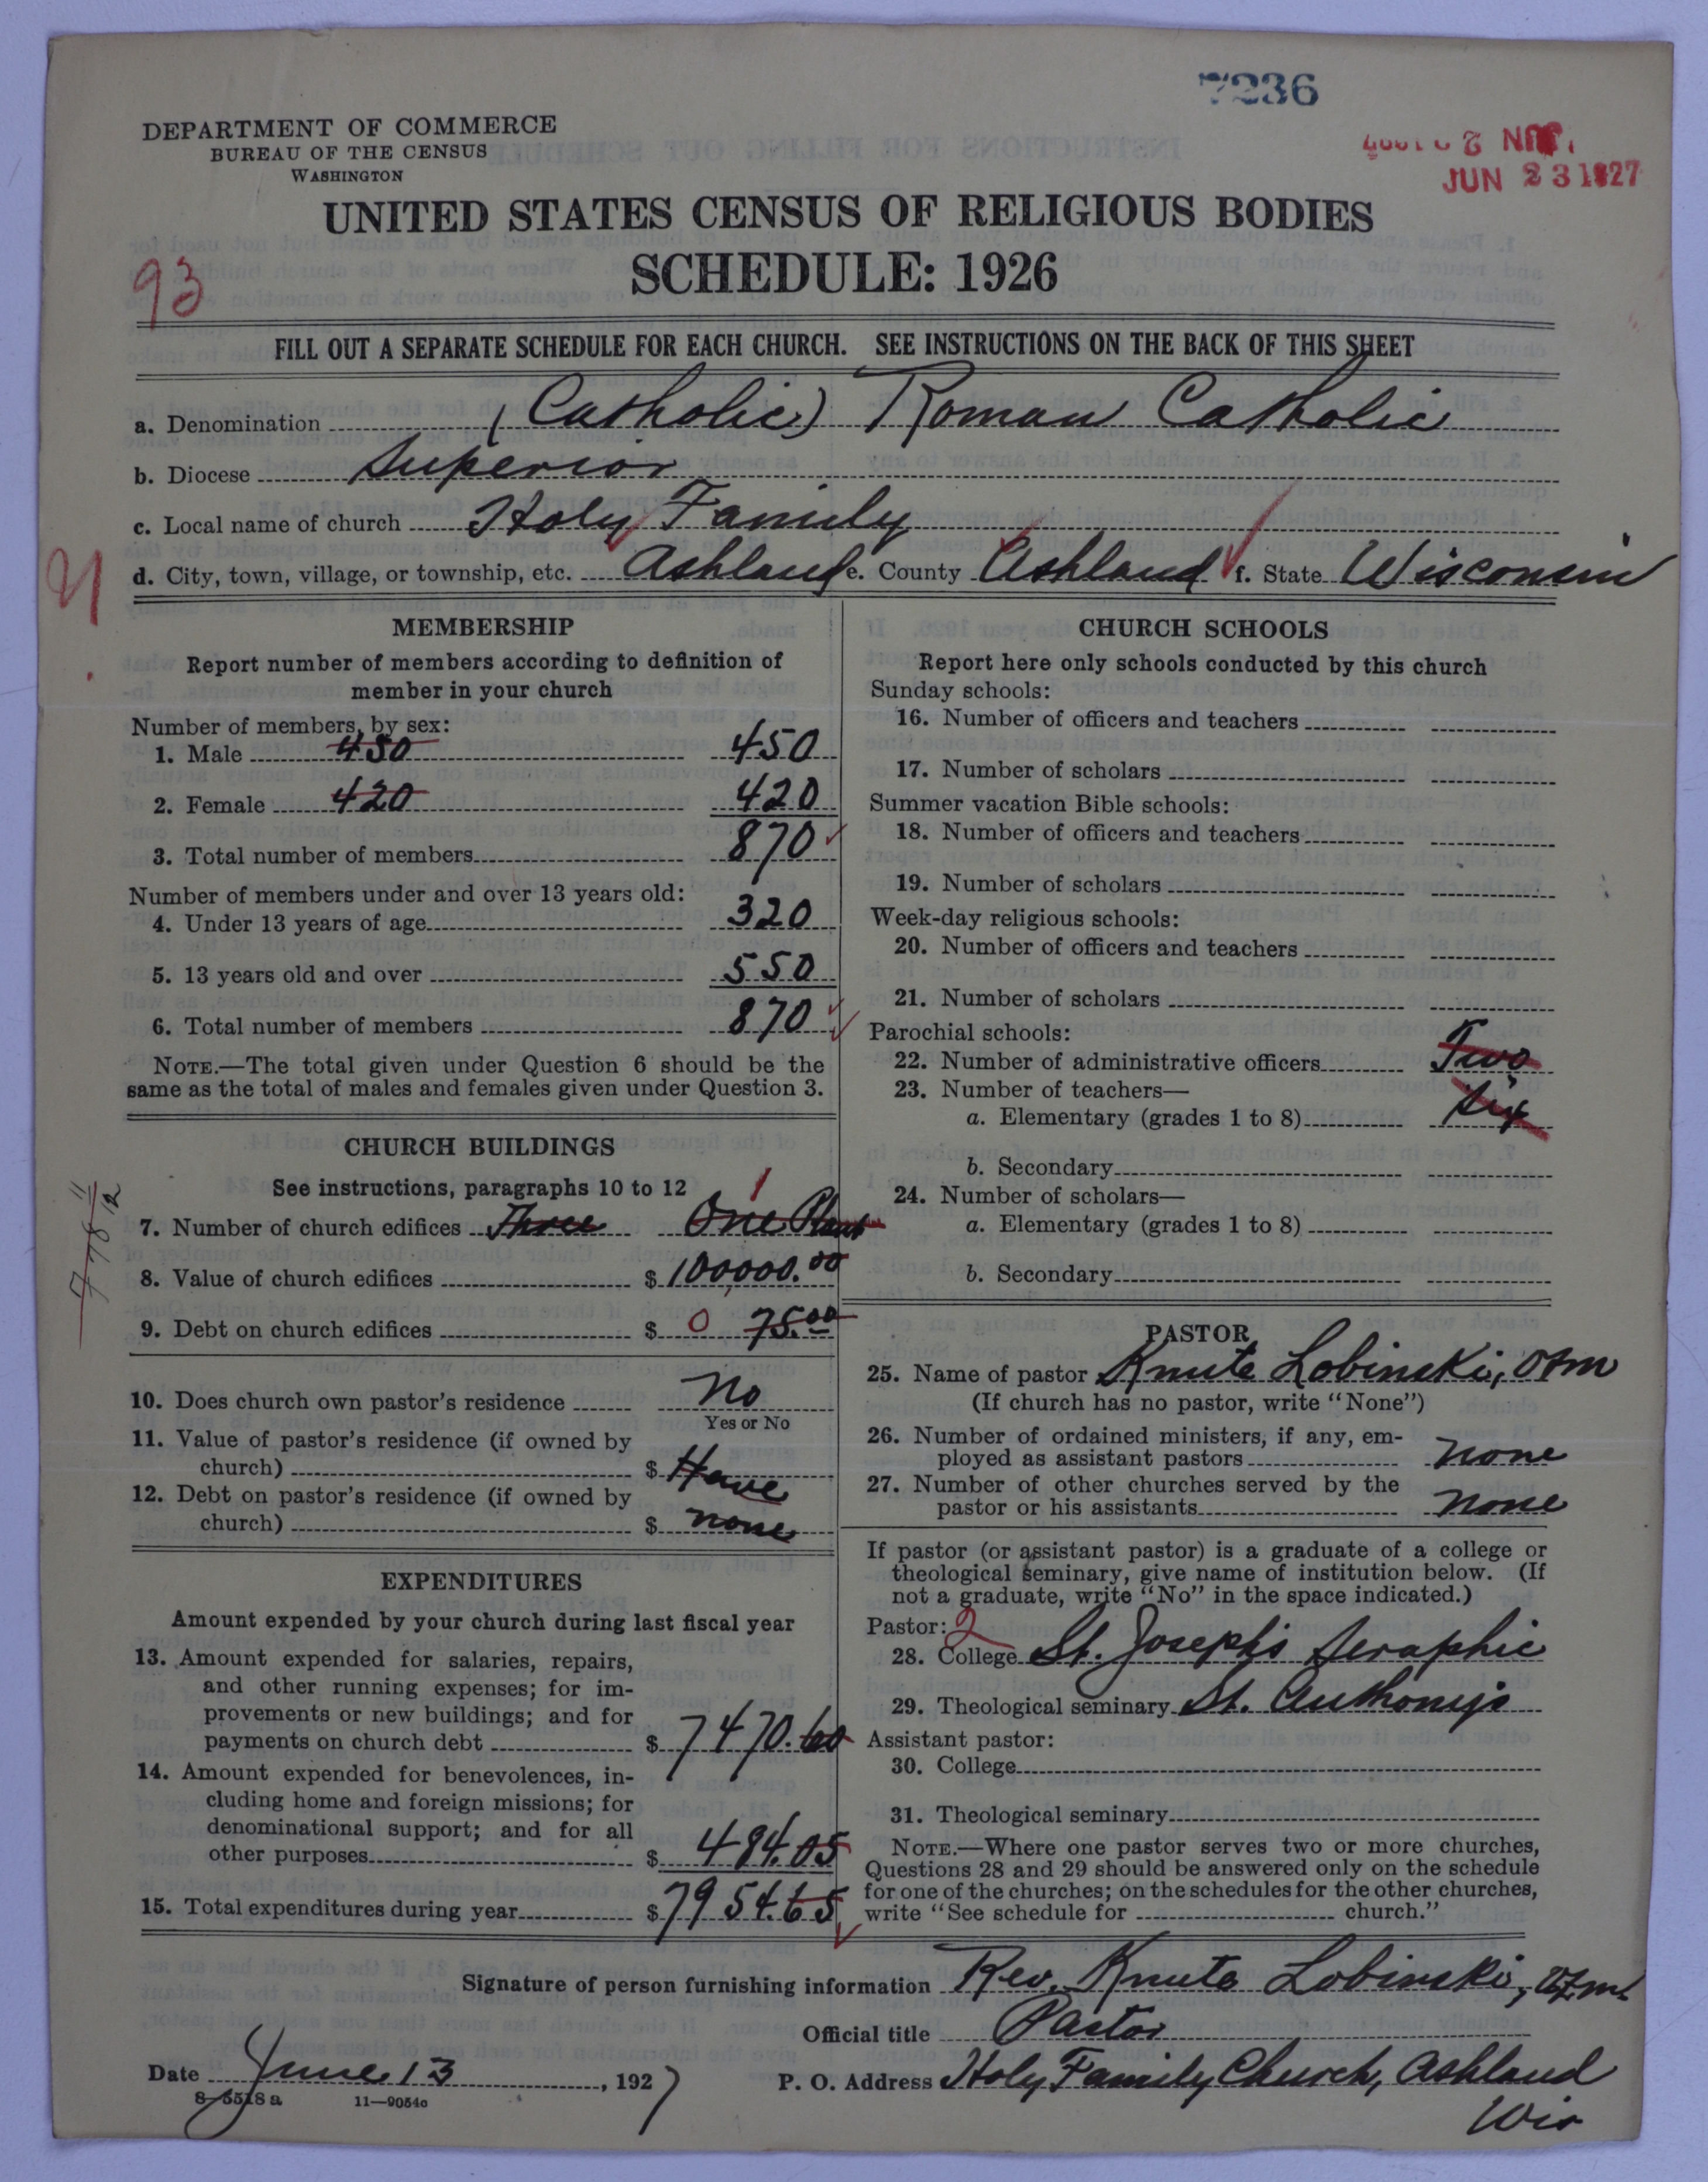 7236
JUN 23 1927
DEPARTMENT OF COMMERCE
BUREAU OF THE CENSUS
WASHINGTON
UNITED STATES CENSUS OF RELIGIOUS BODIES
SCHEDULE: 1926
93
FILL OUT A SEPARATE SCHEDULE FOR EACH CHURCH. SEE INSTRUCTIONS ON THE BACK OF THIS SHEET
a. Denomination (Catholic) Roman Catholic
b. Diocese Superior
c. Local name of church Holy Family
d. City, town, village, or township, etc. Ashland e. County Ashland f. State Wisconsin
MEMBERSHIP
Report number of members according to definition of
member in your church
Number of members, by sex:
1. Male 450 450
2. Female 420 420
3. Total number of members 870
Number of members under and over 13 years old:
4. Under 13 years of age 320
5. 13 years old and over 550
6. Total number of members 870
NOTE.—The total given under Question 6 should be the
same as the total of males and females given under Question 3.
CHURCH BUILDINGS
See instructions, paragraphs 10 to 12
1
7. Number of church edifices Three One Plant
8. Value of church edifices $ 100,000.00
9. Debt on church edifices $ 0 75.00
10. Does church own pastor's residence No
Yes or No
11. Value of pastor's residence (if owned by
church) $ Have
12. Debt on pastor's residence (if owned by
church) $ none
EXPENDITURES
Amount expended by your church during last fiscal year
13. Amount expended for salaries, repairs,
and other running expenses; for im-
provements or new buildings; and for
payments on church debt $ 7470.60
14. Amount expended for benevolences, in-
cluding home and foreign missions; for
denominational support; and for all
other purposes $ 484.05
15. Total expenditures during year $ 7954.65
CHURCH SCHOOLS
Report here only schools conducted by this church
Sunday schools:
16. Number of officers and teachers
17. Number of scholars
Summer vacation Bible schools:
18. Number of officers and teachers
19. Number of scholars
Week-day religious schools:
20. Number of officers and teachers
21. Number of scholars
Parochial schools:
22. Number of administrative officers Two
23. Number of teachers—
a. Elementary (grades 1 to 8) Six
b. Secondary
24. Number of scholars—
a. Elementary (grades 1 to 8)
b. Secondary
PASTOR
25. Name of pastor Knute Lobinski, OFM
(If church has no pastor, write "None")
26. Number of ordained ministers, if any, em-
ployed as assistant pastors none
27. Number of other churches served by the
pastor or his assistants none
If pastor (or assistant pastor) is a graduate of a college or
theological seminary, give name of institution below. (If
not a graduate, write "No" in the space indicated.)
Pastor: 2
28. College St. Joseph's Seraphic
29. Theological seminary St. Anthony's
Assistant pastor:
30. College
31. Theological seminary
NOTE.—Where one pastor serves two or more churches,
Questions 28 and 29 should be answered only on the schedule
for one of the churches; on the schedules for the other churches,
write "See schedule for church."
Signature of person furnishing information Rev. Knute Lobinski, O.F.M.
Official title Pastor
Date June 13, 1927 P. O. Address Holy Family Church, Ashland
Wis
8-5518 a 11—9054a